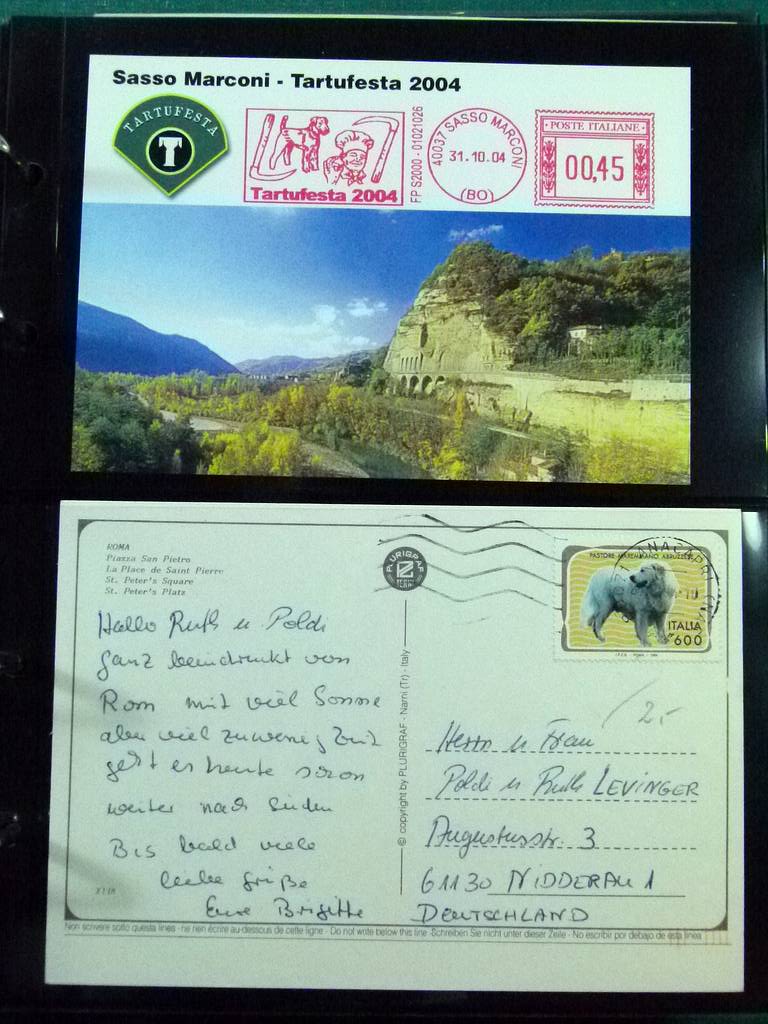 Sasso Marconi - Tartufesta 2004
TARTUFESTA
T
Tartufesta 2004
FP S2000 - 01021026
40037 SASSO MARCONI
31.10.04
(BO)
POSTE ITALIANE
00,45
ROMA
Piazza San Pietro
La Place de Saint Pierre
St. Peter's Square
St. Peter's Platz
Hallo Ruth u Poldi
ganz beeindruckt von
Rom mit viel Sonne
aber viel zuwenig Zeit
geht es heute schon
weiter nach Süden
Bis bald viele
liebe Grüße
Eure Brigitte
PLURIGRAF
TERNI
© copyright by PLURIGRAF - Narni (Tr) - Italy
PASTORE MAREMMANO ABRUZZESE
ITALIA
600
ANACAPRI
2.-
Herrn u Frau
Poldi u Ruth LEVINGER
Augustusstr. 3
61130 NIDDERAU 1
DEUTSCHLAND
Non scrivere sotto questa linea - ne rien écrire au-dessous de cette ligne - Do not write below this line - Schreiben Sie nicht unter dieser Zeile - No escribir por debajo de esta linea